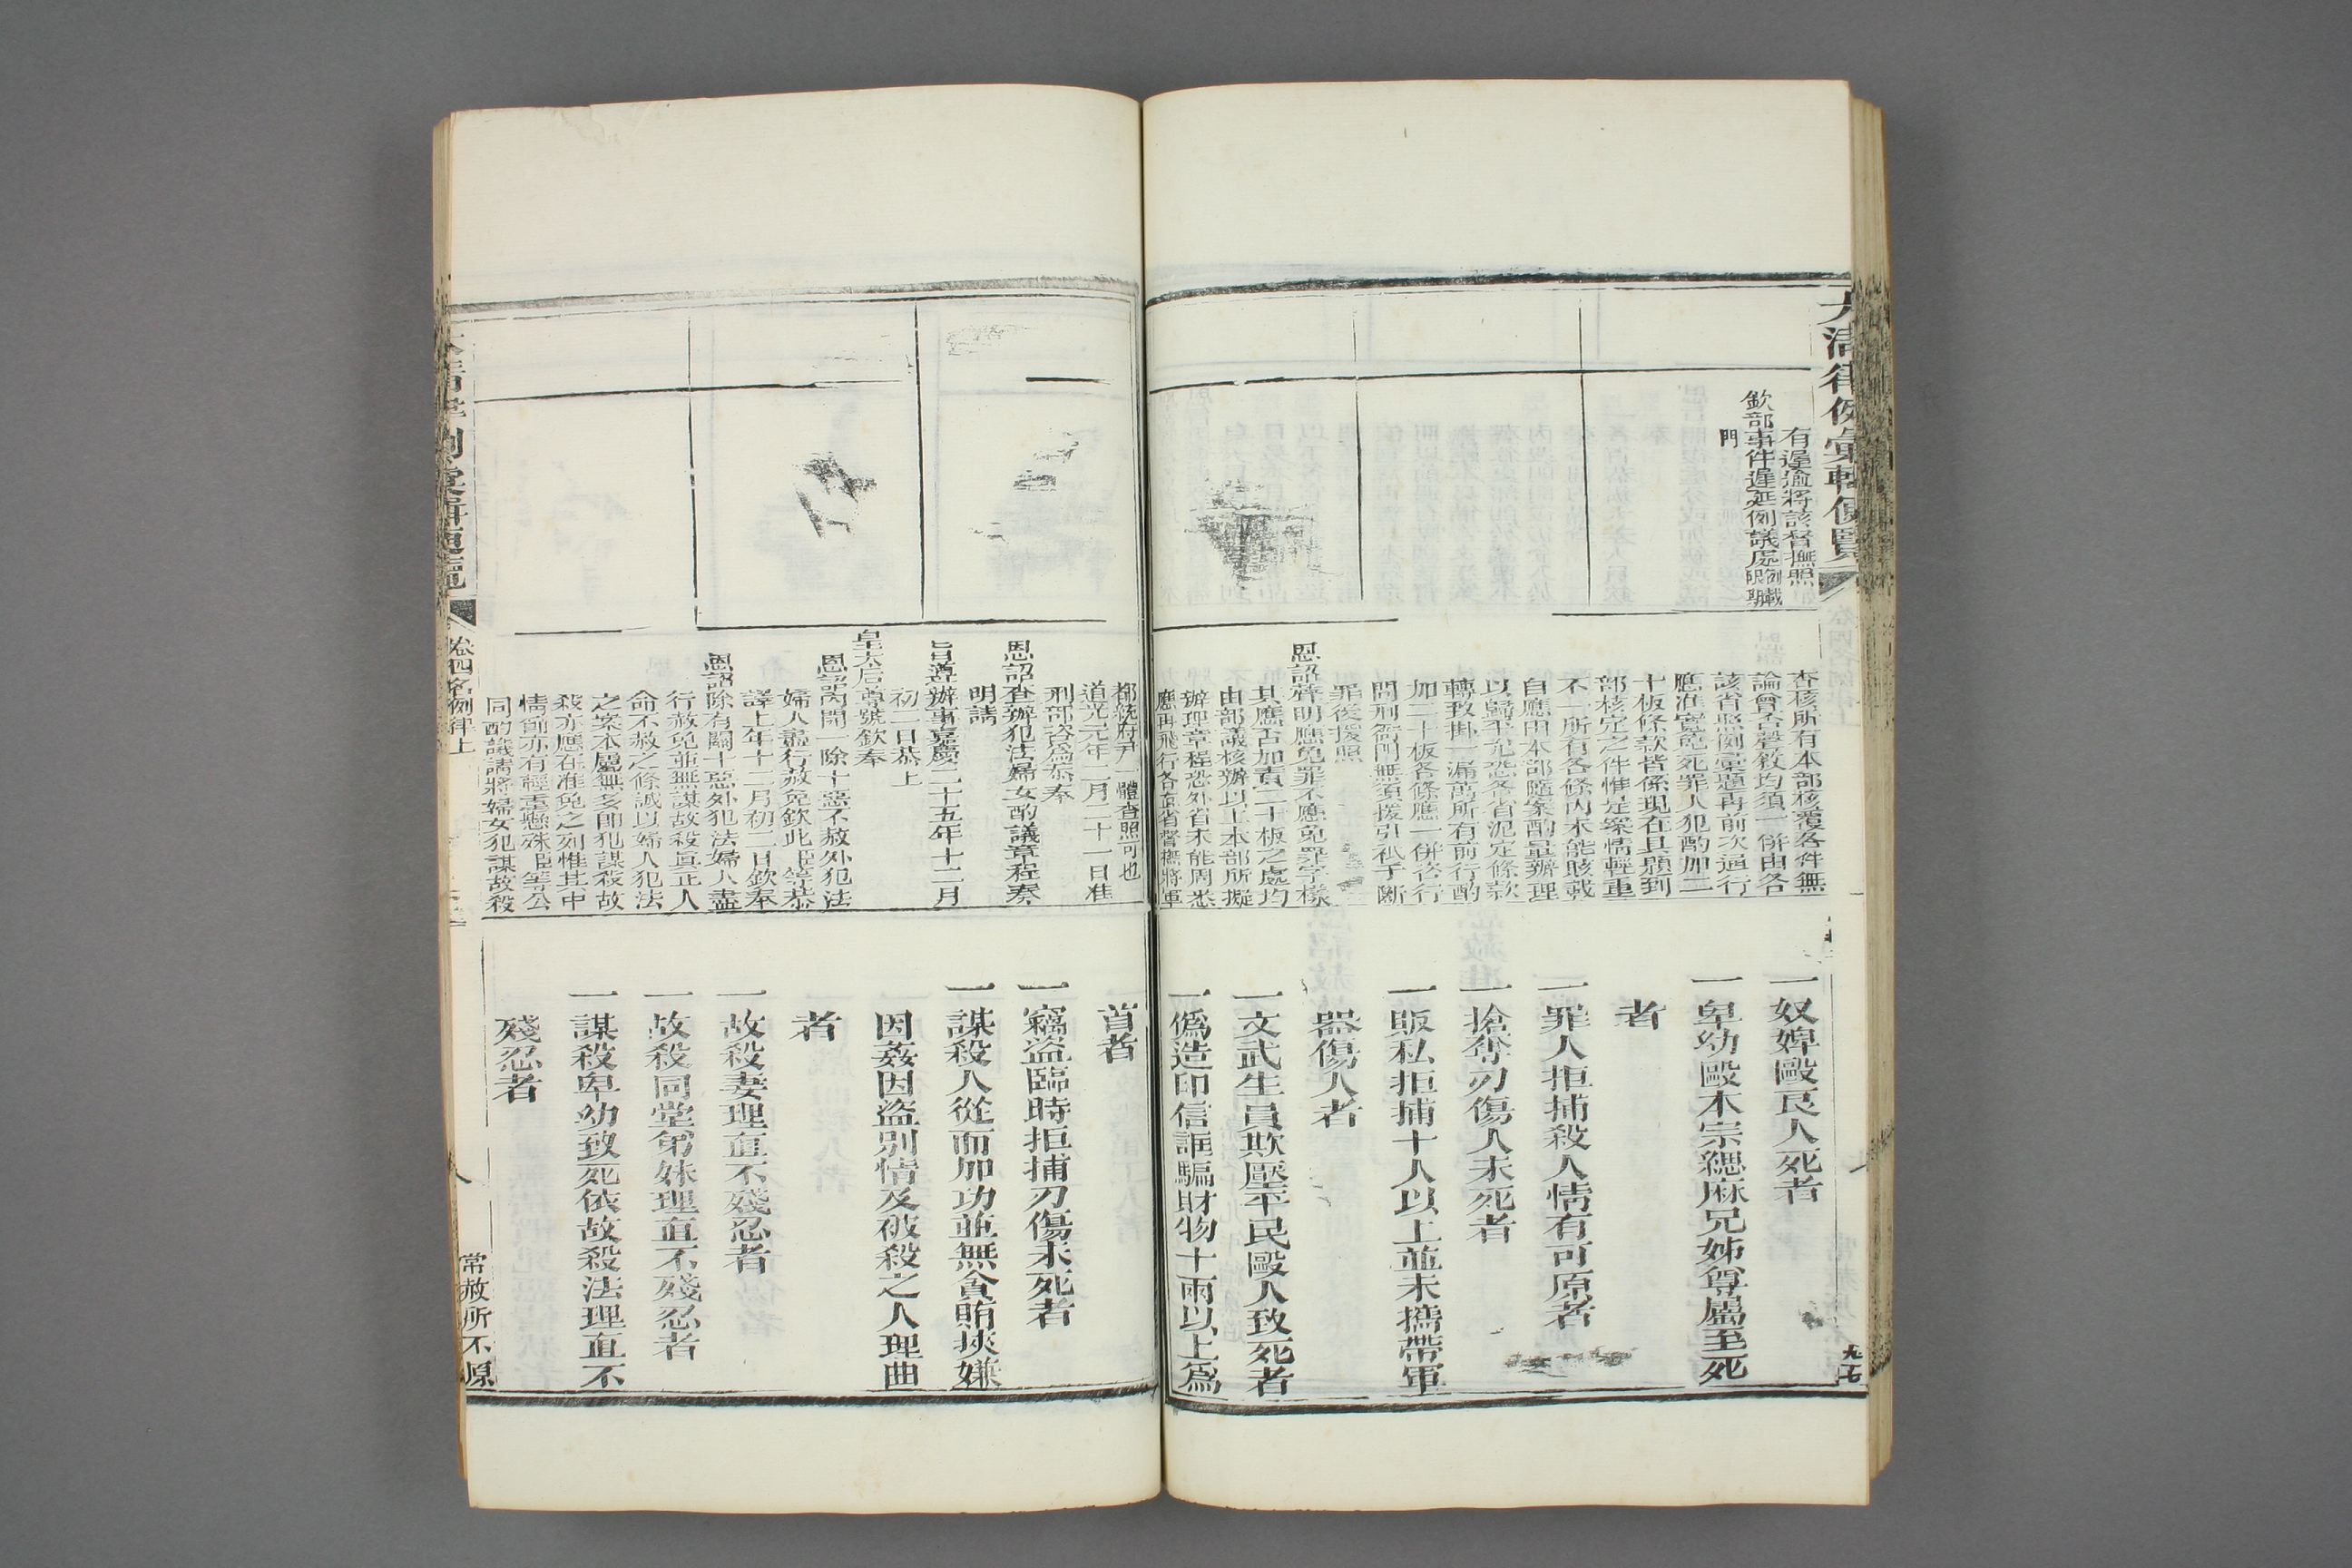 大清律例彙輯便覽
有遲逾將該督撫照
欽部事件遲延例議處例載
限期門
查核所有本部核覆各件無
論曾否聲敘均須一併由各
該省照例彙題再前次通行
應准寬免死罪人犯酌加二
十板條款皆係現在具題到
部核定之件惟是案情輕重
不一所有各條內未能賅載
自應由本部隨案酌量辦理
以歸平允恐各省泥定條款
轉致掛一漏萬所有前行酌
加二十板各條應一併咨行
問刑衙門無須援引祇于斷
罪後援照
恩詔聲明應免罪不應免罪字樣
其應否加責二十板之處均
由部議核辦以上本部所擬
辦理章程恐外省未能周悉
應再飛行各直省督撫將軍
一奴婢毆良人死者
一卑幼毆本宗緦麻兄姊尊屬至死
者
一罪人拒捕殺人情有可原者
一搶奪刃傷人未死者
一販私拒捕十人以上並未攜帶軍
器傷人者
一文武生員欺壓平民毆人致死者
一偽造印信誆騙財物十兩以上為
九七
都統府尹一體查照可也
道光元年二月二十一日准
刑部咨為恭奉
恩詔查辦犯法婦女酌議章程奏
明請
旨遵辦事嘉慶二十五年十二月
初二日恭上
皇太后尊號欽奉
恩詔內開一除十惡不赦外犯法
婦人盡行赦免欽此臣等恭
譯上年十二月初二日欽奉
恩詔除有關十惡外犯法婦人盡
行赦免並無謀故殺真正人
命不赦之條誠以婦人犯法
之案本屬無多即犯謀殺故
殺亦應在准免之列惟其中
情節亦有輕重懸殊臣等公
同酌議請將婦女犯謀故殺
首者
一竊盜臨時拒捕刃傷未死者
一謀殺人從而加功並無貪賄挾嫌
因姦因盜別情及被殺之人理曲
者
一故殺妻理直不殘忍者
一故殺同堂弟妹理直不殘忍者
一謀殺卑幼致死依故殺法理直不
殘忍者
大清律例彙輯便覽
卷四名例律上
常赦所不原